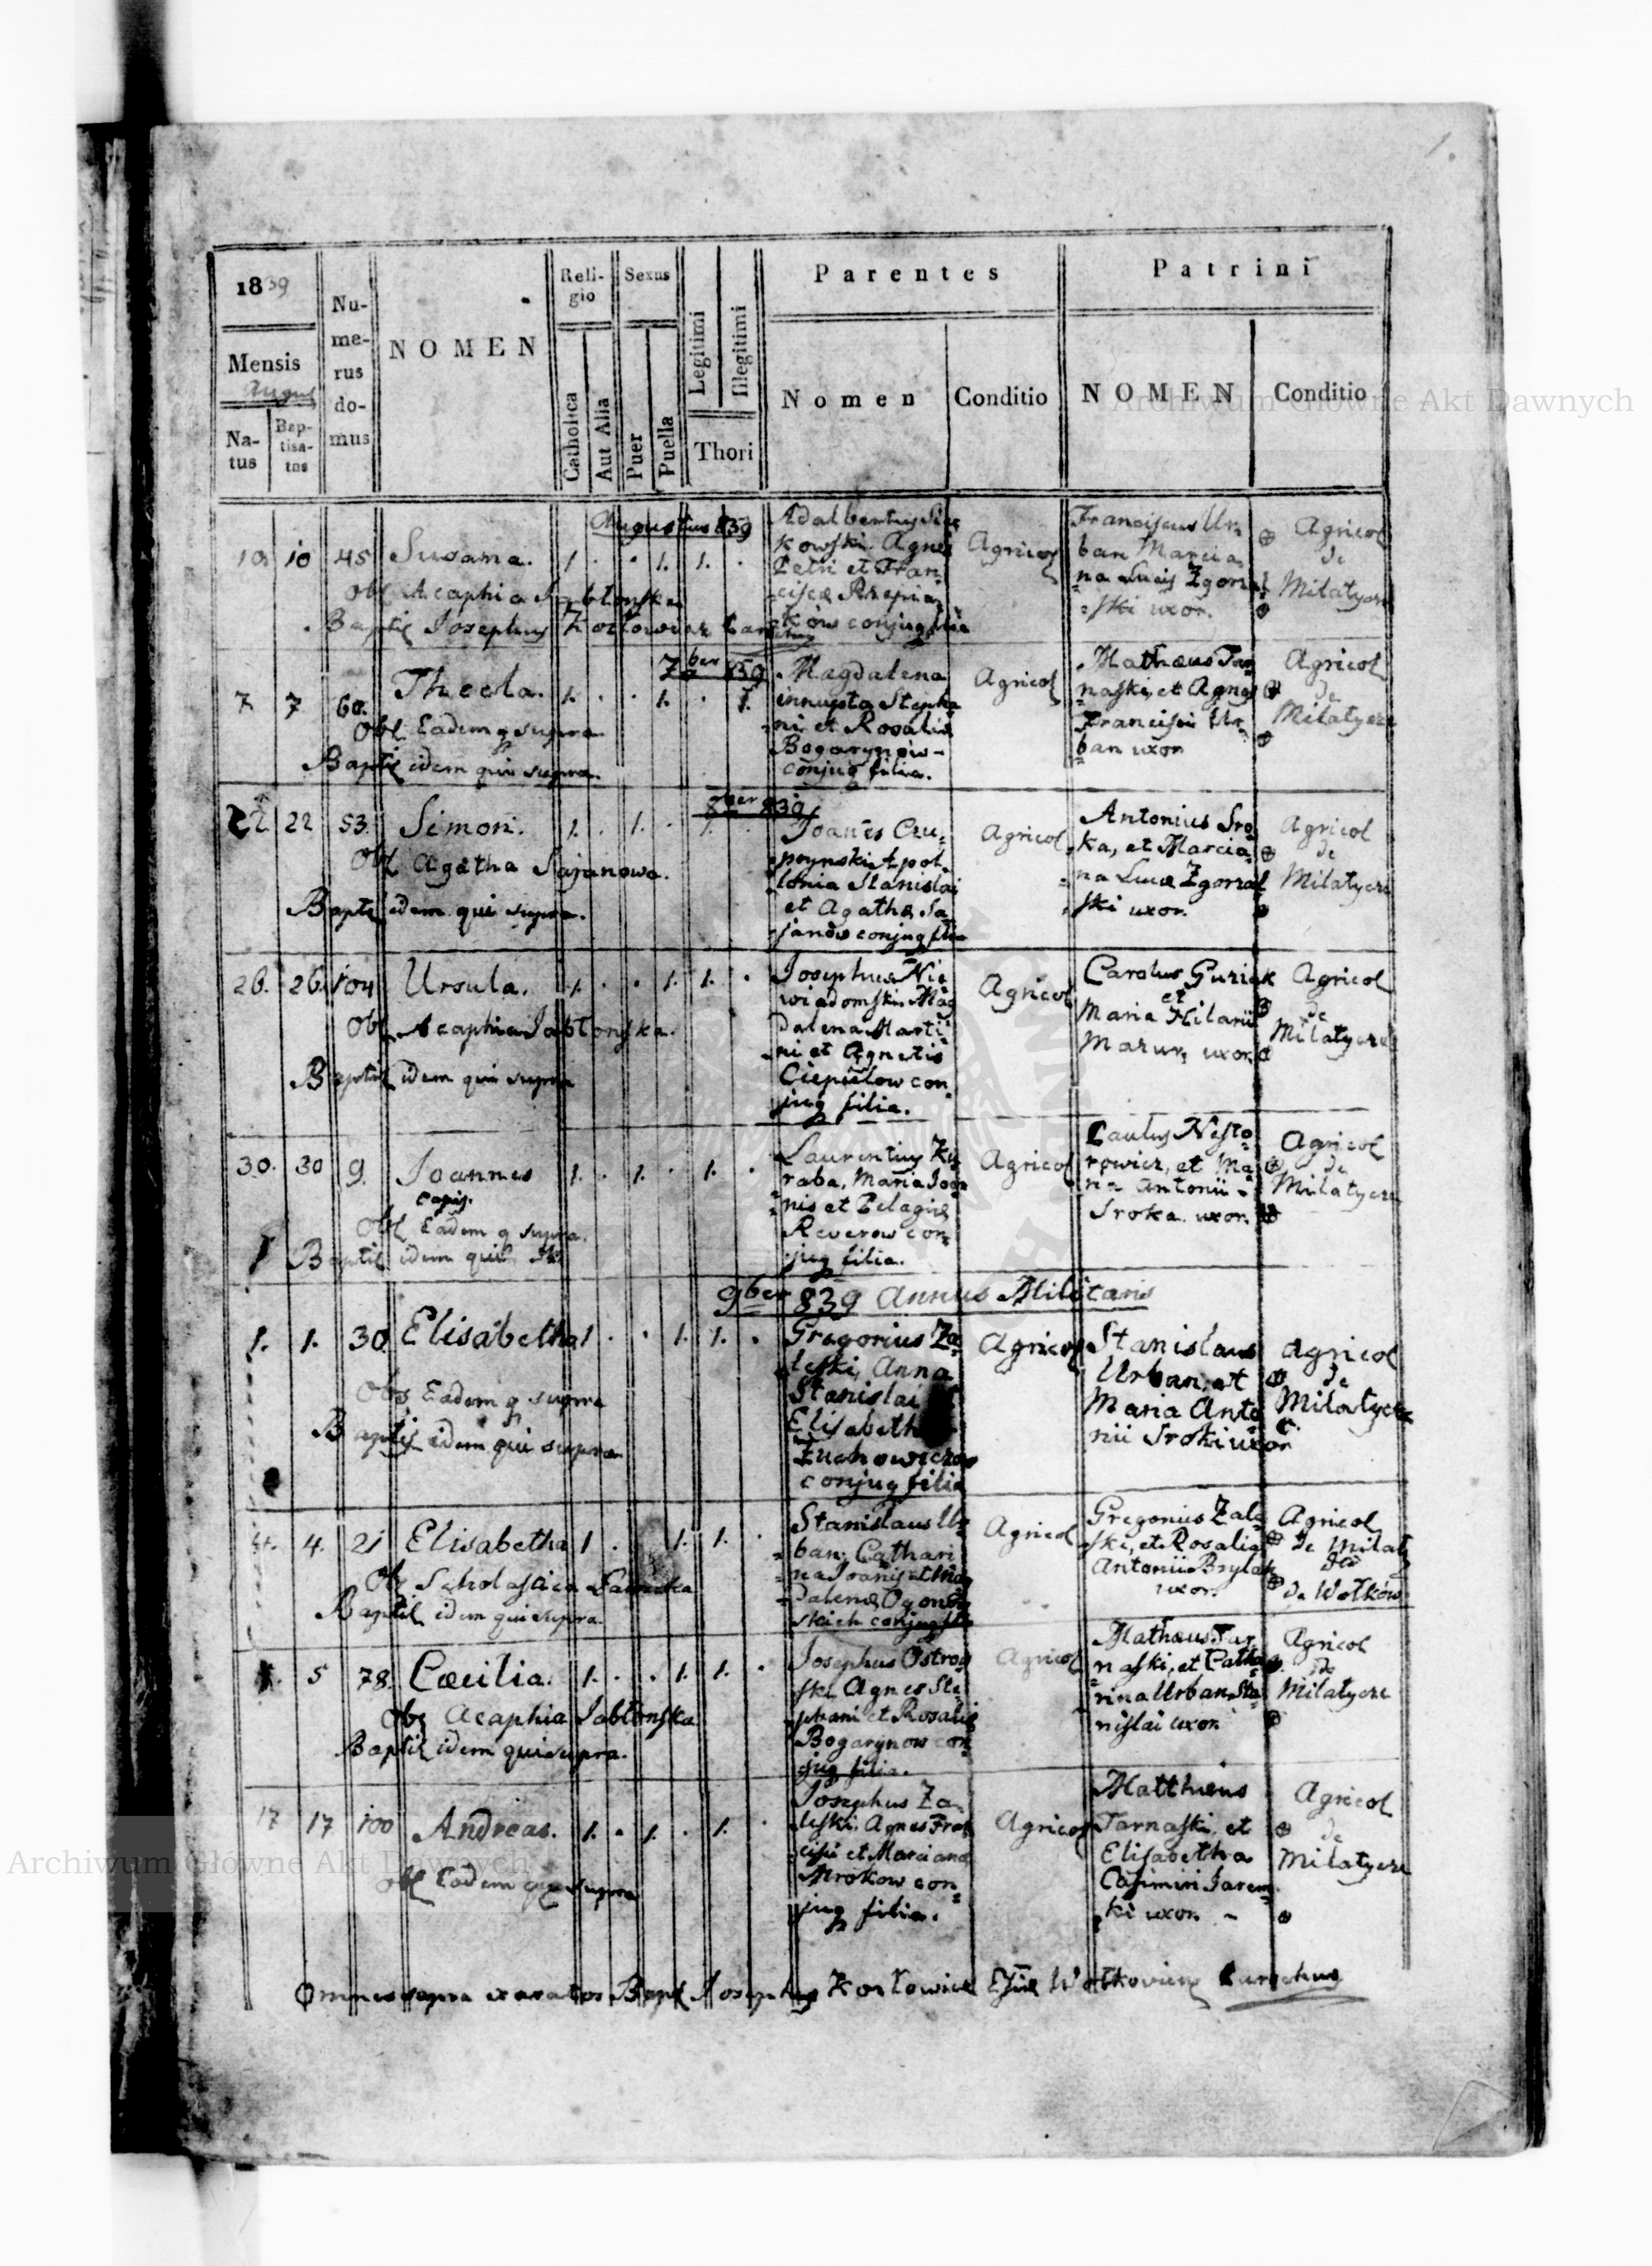 1.
1839
Mensis
August
Natus
Baptisatus
Nu-
me-
rus
do-
mus
NOMEN
Reli-
gio
Catholica
Aut Alia
Sexus
Puer
Puella
Legitimi
Illegitimi
Thori
Parentes
Nomen
Conditio
Patrini
NOMEN
Conditio
Archiwum Główne Akt Dawnych
Augustus 839
10 10 45 Susana. 1. . . 1. 1. .
Obs Acaphia Jabłonska
Baptis Josephus Kozłowicz
Adalbertus
kowski. Agnes
Petri et Fran-
ciscæ
conjug filia
Agricol
Franciscus Ur-
ban Marcia-
na Lucis Zgorzal
ski uxor.
Agricol
de
Milatycze
7ber 839
7. 7 60. Thecla. 1. . . 1. . 1.
Obs Eadem q supra.
Baptis idem qui supra.
Magdalena
innupta Stepha
ni et Rosaliæ
Bogarynow-
conjug filia.
Agricol
Mathæus Tar
naski, et Agnes
Francisci Ur
ban uxor
Agricol
de
Milatycze
8ber 839
22 22 53. Simon. 1. . 1. . 1.
Obs Agatha Sajanowa.
Baptis idem qui supra.
Joanes Czu-
pynski Apol-
lonia Stanislai
et Agathæ Sa-
janow conjug filia
Agricol
Antonius Sro
ka, et Marcia
na Lucæ Zgorzal
ski uxor.
Agricol
de
Milatycze
26. 26. 104 Ursula. 1. . . 1. 1. .
Obs Acaphia Jabłonska.
Baptis idem qui supra
Josephus Nie
wiadomski Mag
dalena Marti-
ni et Agnetis
Ciepielow con
jug filia.
Agricol
Carolus Guziak
et
Maria Hilarii
Mazur, uxor.
Agricol
de
Milatycze
30. 30 9. Joannes 1. . 1. . 1. .
Obs Eadem q supra.
Baptis idem qui
Laurentius Ku-
raba, Maria Joan
nis et Pelagiæ
Reverow con-
jug filia.
Agricol
Paulus Nesto
rowicz, et Ma
ria Antonii -
Sroka. uxor.
Agricol
de
Milatycze
9ber 839 Annus Militaris
1. 1. 30. Elisabetha 1 . . 1. 1. .
Obs Eadem q supra
Baptis idem qui supra
Gregorius Za
leski, Anna
Stanislai
Elisabeth
Zuchowiczow
conjug filia
Agricol
Stanislaus
Urban, et
Maria Anto
nii Sroki uxor.
Agricol
de
Milatycze
4. 4. 21 Elisabetha 1 . . 1. 1. .
Obs Scholastica
Baptis idem qui supra.
Stanislaus Ur
ban, Cathari
na Joanis et Mag
dalenæ Ogon
skich conjug filia
Agricol
Gregorius Zale
ski, et Rosalia
Antonii Brylak
uxor.
Agricol
de Milaty
de Wołków
5 78. Cæcilia. 1. . . 1. 1. .
Obs Acaphia Jabłonska
Baptis idem qui supra.
Josephus Ostrow
ski Agnes Ste
phani et Rosaliæ
Bogarynow con
jug filia.
Agricol
Mathæus Tar
naski, et Catha
rina Urban Sta
nislai uxor
Agricol
de
Milatycze
17 17 100 Andreas. 1. . 1. . 1. .
Obs Eadem quæ supra
Josephus Za-
leski, Agnes Fran
cisci et Marcianæ
Mrokow con-
jug filia.
Agricol
Matthæus
Tarnaski, et
Elisabetha
Casimiri Jarem
ki uxor. -
Agricol
de
Milatycze
Archiwum Główne Akt Dawnych
Omnes supra exaratos Bapt Josephus Kozłowicz Ecclæ Wołkovien Parochus